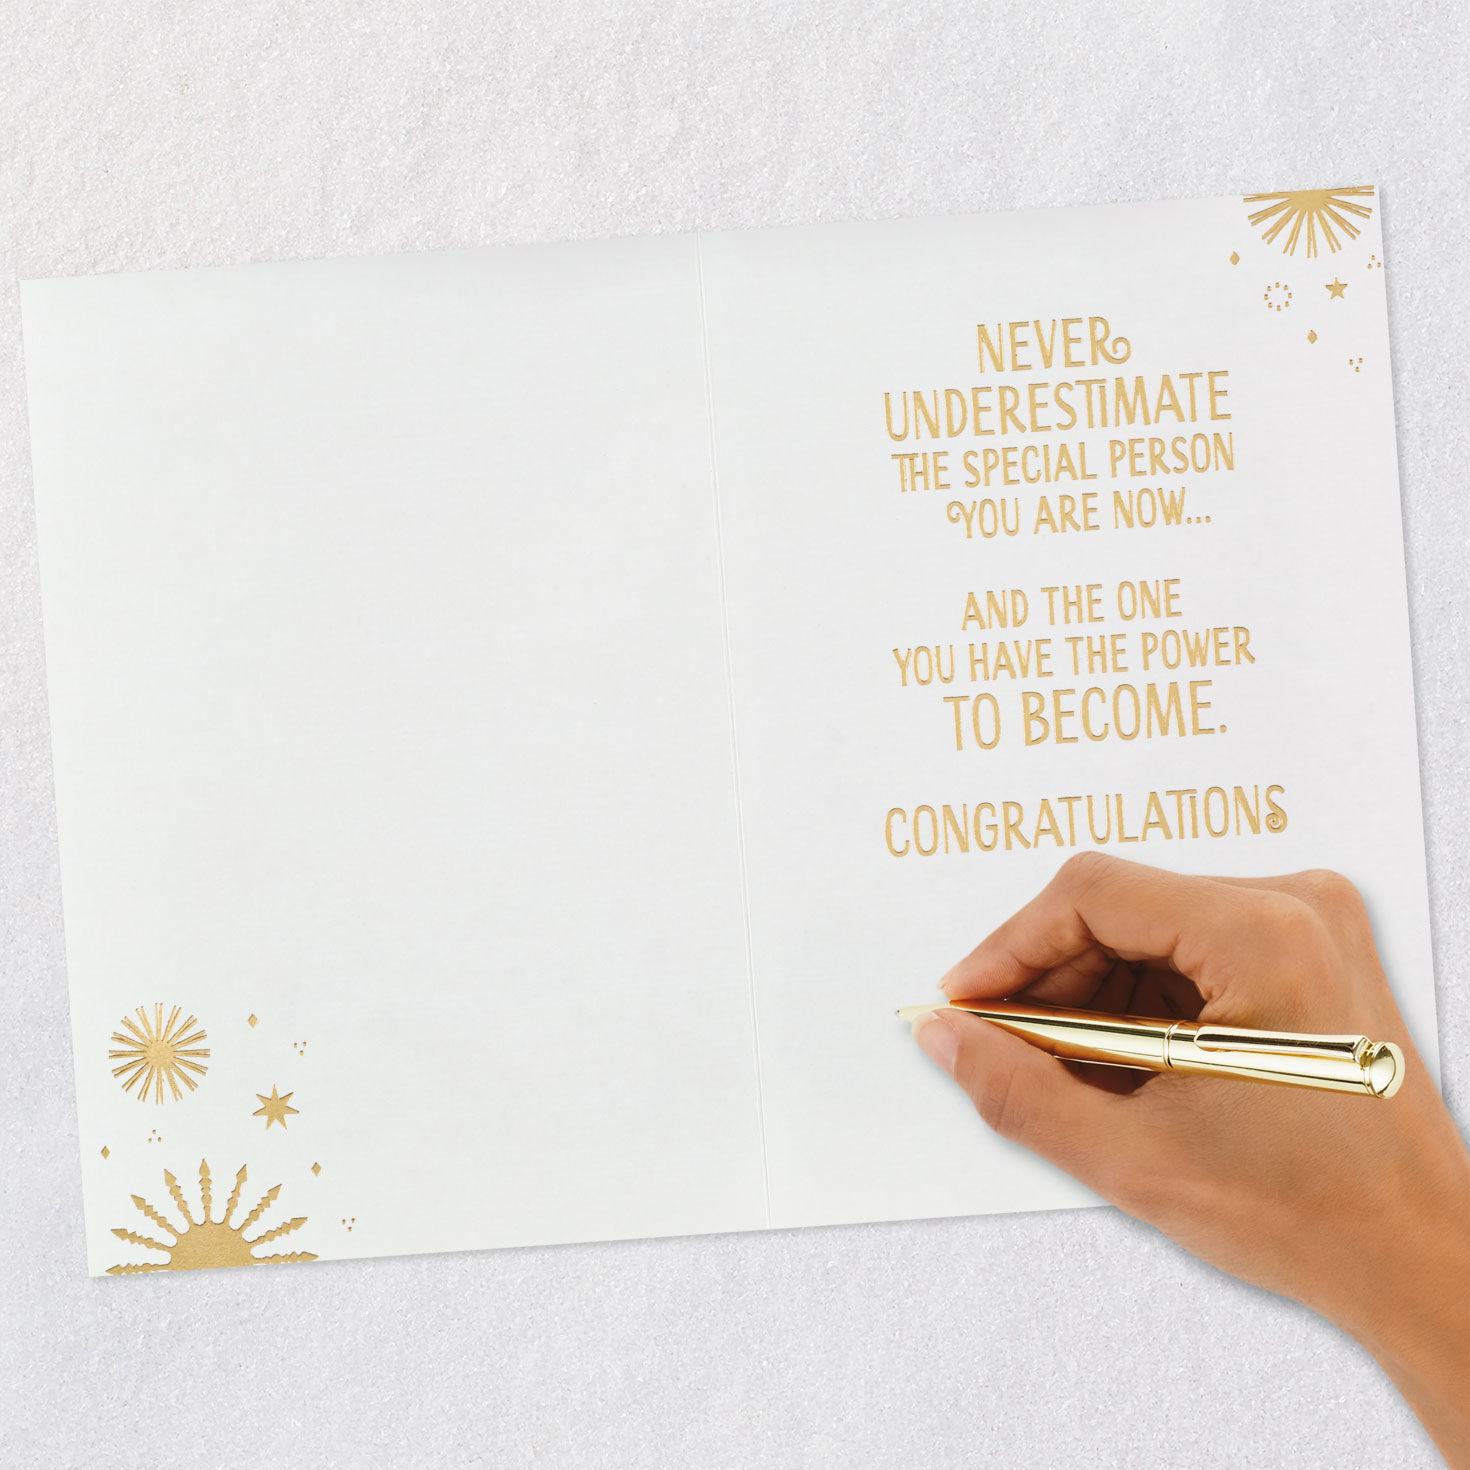 NEVER
UNDERESTIMATE
THE SPECIAL PERSON
YOU ARE NOW...
AND THE ONE
YOU HAVE THE POWER
TO BECOME.
CONGRATULATIONS